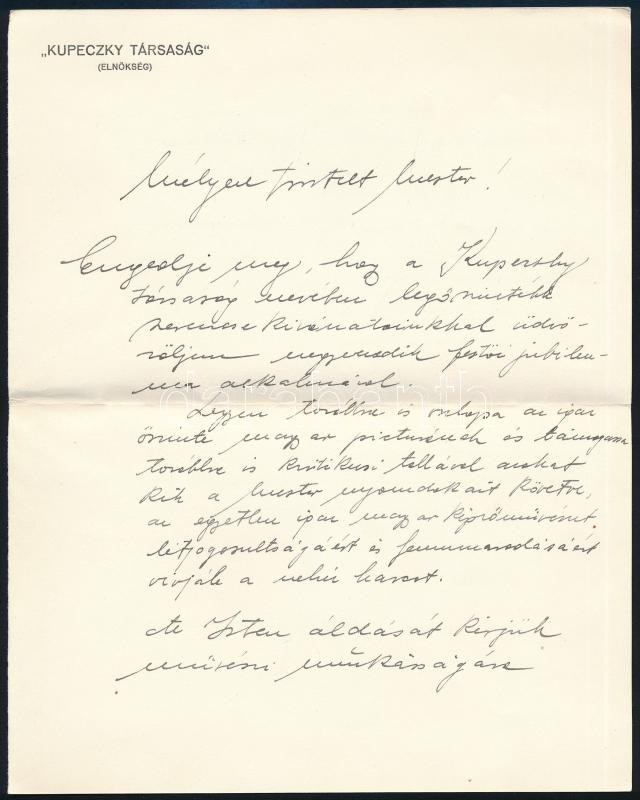 „KUPECZKY TÁRSASÁG“
(ELNÖKSÉG)
Mélyen tisztelt Mester!
Engedje meg, hogy a Kupeczky
társaság nevében legőszintébb
szerencsekívánatainkkal üdvö-
zöljem negyvenedik festői jubileu-
ma alkalmával.
Legyen továbbra is oszlopa az igaz
őszinte magyar picturának és támogassa
továbbra is kritikusi tollával azokat
kik a Mester nyomdokait követve,
az egyetlen igaz magyar képzőművészet
létjogosultságáért és fennmaradásáért
vívják a nehéz harcot.
Az Isten áldását kérjük
művészi munkásságára
darabanth